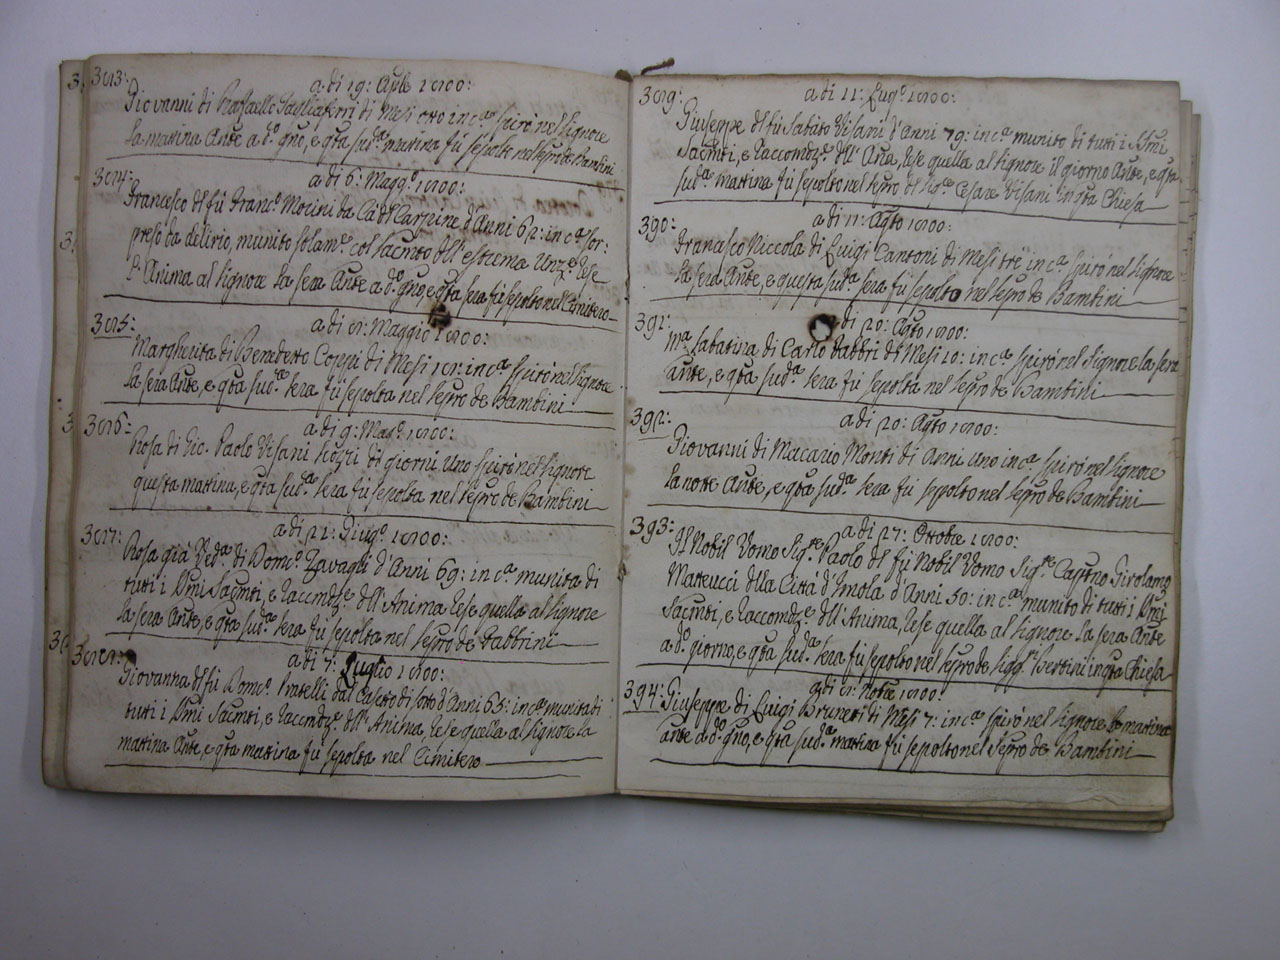 383:
a di 19: Aprle 1800:
Giovanni di Raffaelle Tagliaferri di Mesi otto in cª spirò nel Signore
la mattina Ante a dº gno, e qta sudª mattina fù sepolto nel sepro de Bambini
384:
a di 6: Maggº 1800:
Francesco dl fù Francº Morini da Cà dl Carpine d'Anni 62: in cª sor:
preso da delirio, munito solamᵉ col Sacmto dll'estrema Unzᵉ rese
l'Anima al Signore la sera Ante a dº gno, e qta sera fù sepolto nel Cimitero
385:
a di 8: Maggio 1800:
Margherita di Benedetto Coppi di Mesi 18: in cª spirò nel Signore
la sera Ante, e qta sudª sera fù sepolta nel sepro de Bambini
386:
a di 9: Magº 1800:
Rosa di Gio. Paolo Visani Scozzi di giorni uno spirò nel Signore
questa mattina, e qta sudª sera fù sepolta nel sepro de Bambini
387:
a di 21: Giugº 1800:
Rosa già Vedª di Domcº Zavagli d'Anni 69: in cª munita di
tutti i SSmi Sacmti, e raccmdzᵉ dll'Anima, rese quella al Signore
la sera Ante, e qta sudª sera fù sepolta nel sepro de Fabbrini
388:
a di 7: Luglio 1800:
Giovanna dl fù Domcº Pratelli dal Casetto di sotto d'Anni 65: in cª munita di
tutti i SSmi Sacmti, e raccmdzᵉ dll'Anima, rese quella al Signore la
mattina Ante, e qta mattina fù sepolta nel Cimitero
389:
a di 11: Lugº 1800:
Giuseppe dl fù Sabato Visani d'Anni 79: in cª munito di tutti i SSmi
Sacmti, e raccomdzᵉ dll'Ana, rese quella al Signore il giorno Ante, e qta
sudª mattina fù sepolto nel sepro dl Sigᵉ Cesare Visani in qta Chiesa
390:
a di 11: Agto 1800:
Francesco Niccola di Luigi Cantoni di Mesi tre in cª spirò nel Signore
la sera Ante, e questa sudª sera fù sepolto nel sepro de Bambini
391:
a di 20: Agto 1800:
Mª Sabatina di Carlo Fabbri di Mesi 10: in cª spirò nel Signore la sera
ante, e qta sudª sera fù sepolta nel sepro de Bambini
392:
a di 20: Agto 1800:
Giovanni di Macario Monti di Anni uno in cª spirò nel Signore
la notte Ante, e qta sudª sera fù sepolto nel sepro de Bambini
393:
a di 27: Ottobre 1800:
Il Nobil Uomo Sigʳᵉ Paolo dl fù Nobil Uomo Sigʳᵉ Girolamo
Matteucci dlla Città d'Imola d'Anni 50: in cª munito di tutti i SSmi
Sacmti, e raccomdzᵉ dll'Anima, rese quella al Signore la sera Ante
a dº giorno, e qta sudª sera fù sepolto nel sepro de Sigʳⁱ Bertini in qta Chiesa
394:
a di 8: Nobre 1800:
Giuseppe di Luigi Brunetti di Mesi 7: in cª spirò nel Signore la mattina
ante a dº gno, e qta sudª mattina fù sepolto nel Sepro de Bambini